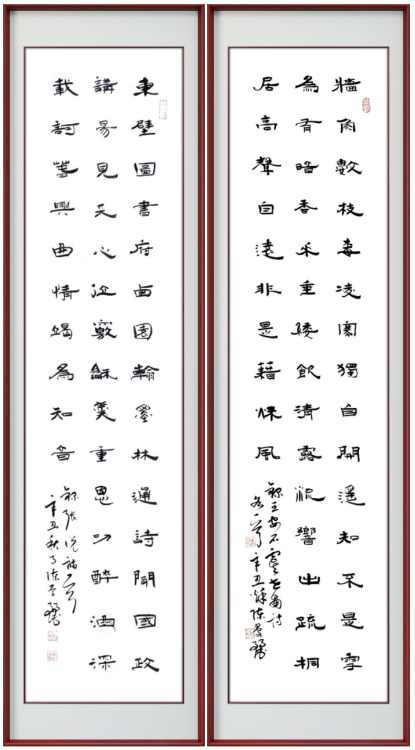 牆角數枝梅凌寒獨自開遙知不是雪
為有暗香来垂緌飲清露流響出疏桐
居高聲自遠非是藉秋風
錄王安石虞世南詩
各一首辛丑秋陳
東壁圖書府西園翰墨林誦詩聞國政
講易見天心位竊和羹重恩叨醉酒深
載訶春興曲情竭為知音
錄張說詩一首
辛丑秋月陳